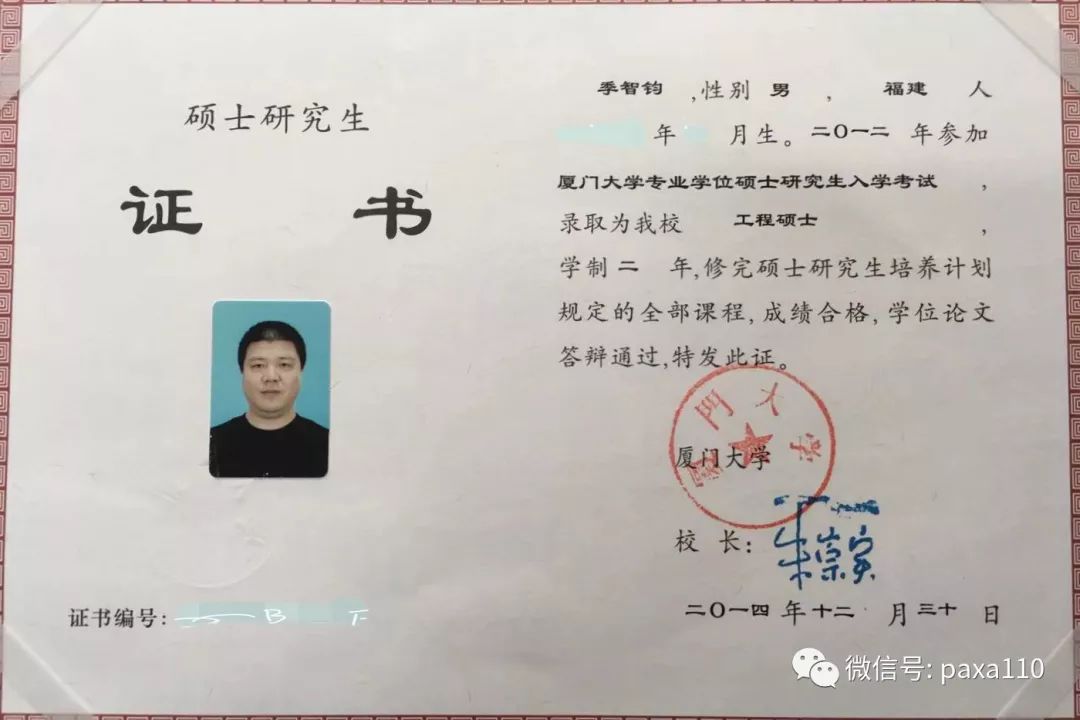 硕士研究生
证 书
证书编号:
季智钧 ,性别 男 , 福建 人
年 月生。二〇一二 年参加
厦门大学专业学位硕士研究生入学考试 ,
录取为我校 工程硕士 ,
学制 二 年,修完硕士研究生培养计划
规定的全部课程,成绩合格,学位论文
答辩通过,特发此证。
厦門大学
厦门大学
校 长: 朱崇实
二〇一四 年 十二 月 三十 日
微信号: paxa110